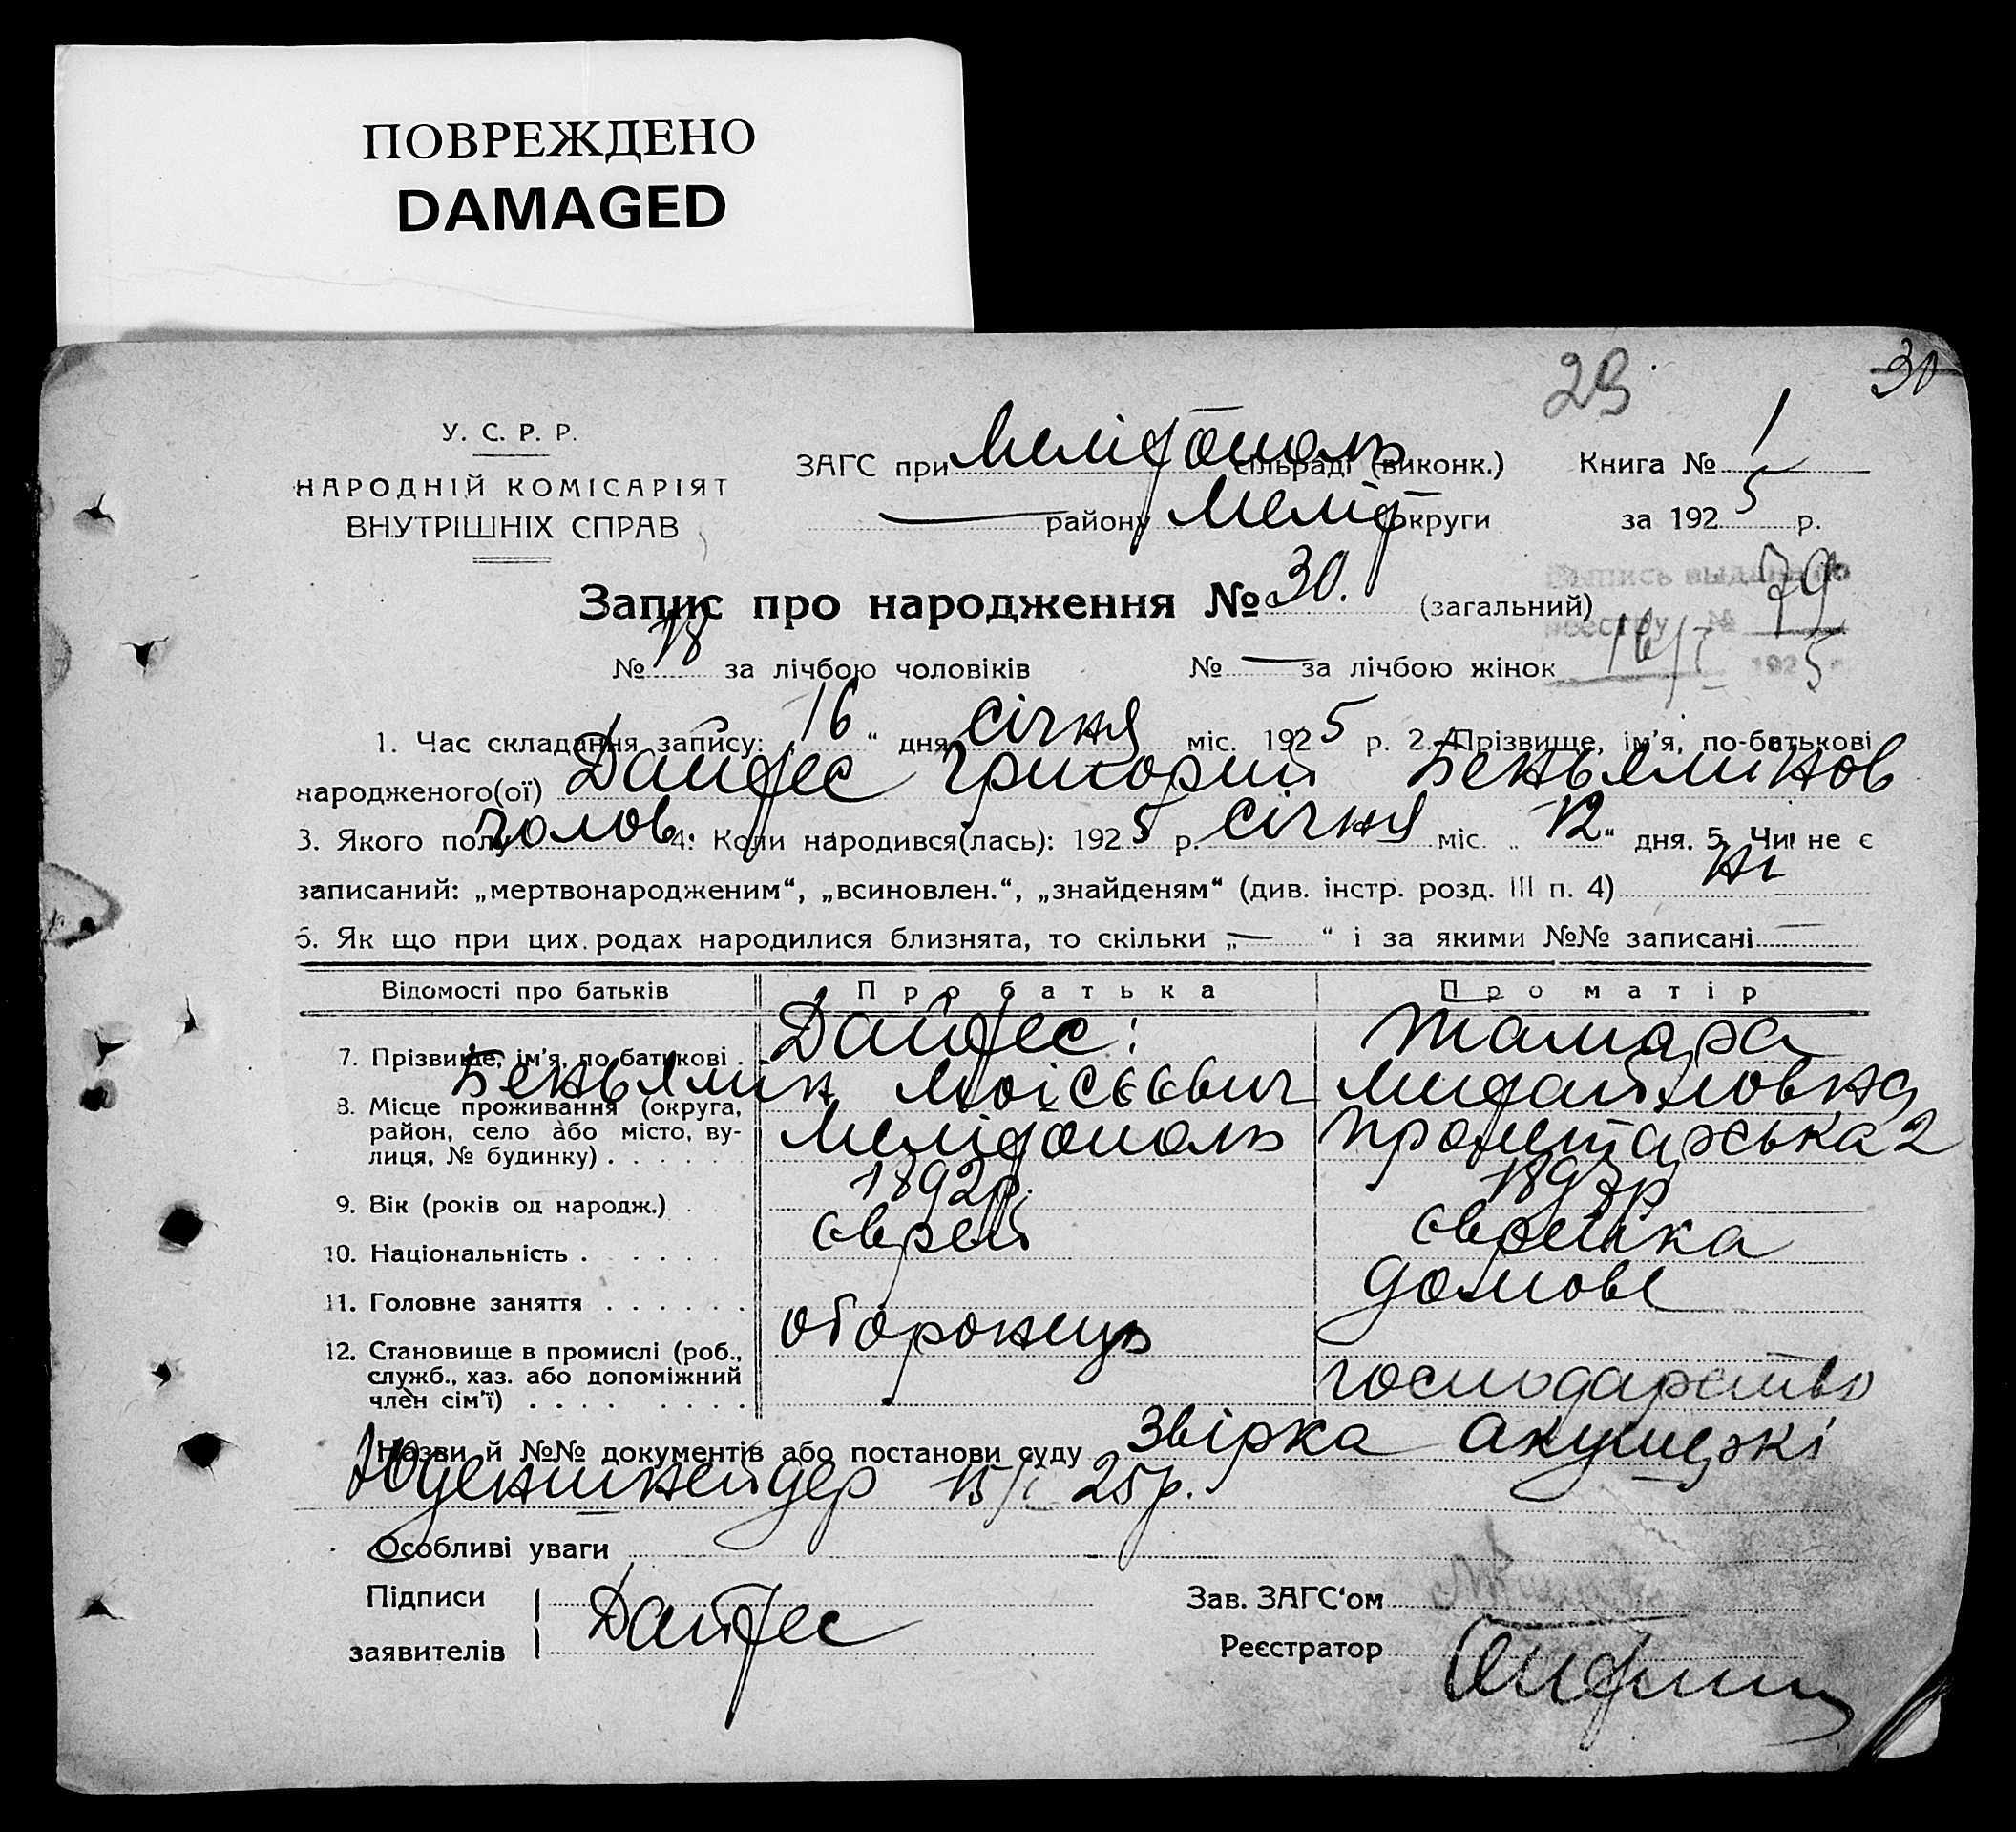 ПОВРЕЖДЕНО
DAMAGED
29 30
У. С. Р. Р.
НАРОДНІЙ КОМІСАРІЯТ
ВНУТРІШНІХ СПРАВ
ЗАГС при Мелітополь сільраді (виконк.) Книга № 1
— району Меліт округи за 1925 р.
Запис про народження № 30. (загальний)
Выпись выдана по
реестру № 79
16/I 1925
№ 18 за лічбою чоловіків № — за лічбою жінок
1. Час складання запису: „16“ дня січня міс. 1925 р. 2. Прізвище, ім’я, по-батькові
народженого(ої) Дайхес Григорий Беньяминов
3. Якого полу чолов 4. Коли народився(лась): 1925 р. січня міс. „12“ дня. 5. Чи не є
записаний: „мертвонародженим“, „всиновлен.“, „знайденям“ (див. інстр. розд. III п. 4) ні
6. Як що при цих родах народилися близнята, то скільки „—“ і за якими №№ записані —
Відомості про батьків Про батька Про матір
7. Прізвище, ім’я, по батькові . Дайхес: Тамара
Беньямін Моісєєвич Михайловна
8. Місце проживання (округа,
район, село або місто, ву-
лиця, № будинку) . . . . . Мелітополь Пролетарська 2
9. Вік (років од народж.) . 1892р. 1897р
10. Національність . . . . . єврей єврейка
11. Головне заняття . . . . . . оборонець домове
12. Становище в промислі (роб.,
служб., хаз. або допоміжний
член сім’ї) . . . . . . . . . господарство
Назви й №№ документів або постанови суду Звірка акушеркі
Юденшнейдер 15/I 25р.
Особливі уваги
Підписи
заявителів Дайхес
Зав. ЗАГС‘ом
Реєстратор